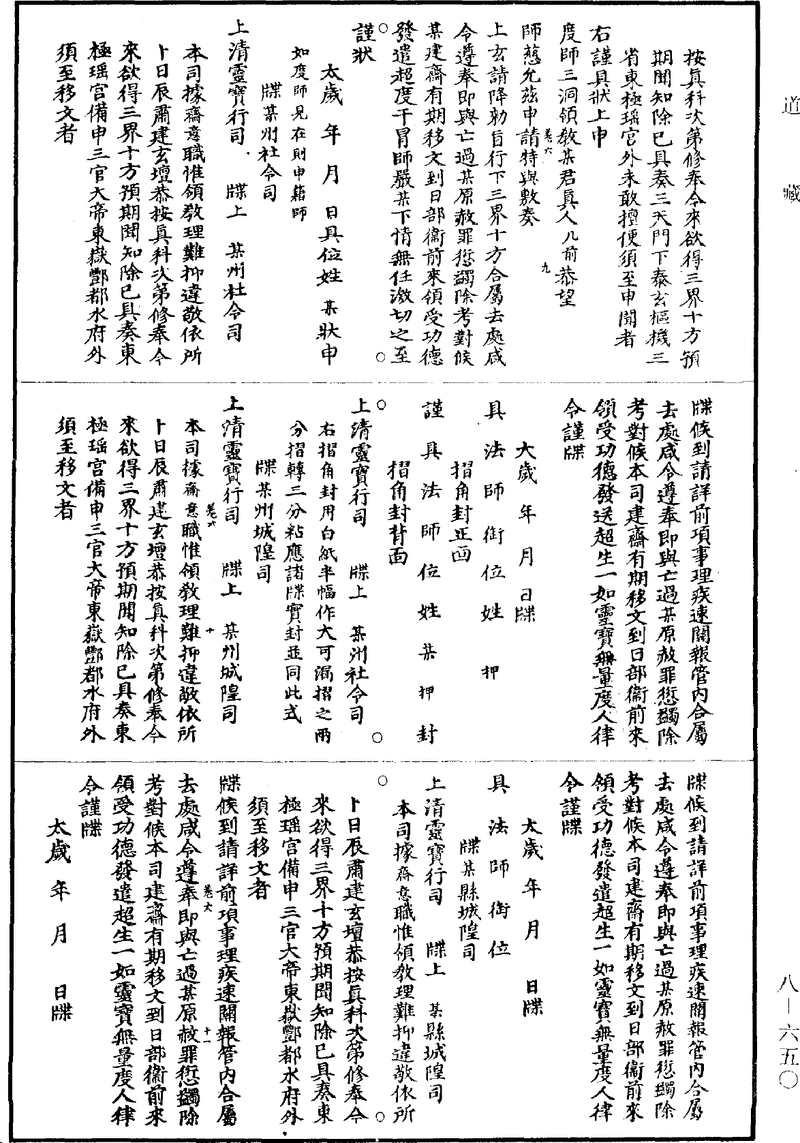 道藏
按真科次第修奉今來欲得三界十方預
期聞知除已具奏三天門下泰玄樞機三
省東極瑶宮外未敢擅便須至申聞者
右謹具狀上申
度師三洞領教某君真人几前恭望
師慈允茲申請特與敷奏
卷六 九
上玄請降勑旨行下三界十方合屬去處咸
令遵奉即與亡過某原赦罪愆蠲除考對候
某建齋有期移文到日部衞前來領受功德
發遣超度干冒師嚴某下情無任激切之至
謹狀
太歲 年 月 日具位姓 某狀申
如度師見在則申籍師
牒某州社令司
上清靈寶行司 牒上 某州社令司
本司據齋意職惟領教理難抑違敬依所
卜日辰肅建玄壇恭按真科次第修奉今
來欲得三界十方預期聞知除已具奏東
極瑶宮備申三官大帝東嶽酆都水府外
須至移文者
牒候到請詳前項事理疾速關報管内合屬
去處咸令遵奉即與亡過某原赦罪愆蠲除
考對候本司建齋有期移文到日部衞前來
領受功德發送超生一如靈寶無量度人律
令謹牒
大歲 年 月 日牒
具法師銜位姓 押
摺角封正面
謹具法師位姓某押封
摺角封背面
上清靈寶行司 牒上 某州社令司
右摺角封用白紙半幅作大可漏摺之兩
分摺轉三分粘應諸牒實封並同此式
牒某州城隍司
上清靈寶行司 牒上 某州城隍司
卷六 十
本司據齋意職惟領教理難抑違敬依所
卜日辰肅建玄壇恭按真科次第修奉今
來欲得三界十方預期聞知除已具奏東
極瑶宮備申三官大帝東嶽酆都水府外
須至移文者
牒候到請詳前項事理疾速關報管内合屬
去處咸令遵奉即與亡過某原赦罪愆蠲除
考對候本司建齋有期移文到日部衞前來
領受功德發遣超生一如靈寶無量度人律
令謹牒
太歲 年 月 日牒
具法師銜位
牒某縣城隍司
上清靈寶行司 牒上 某縣城隍司
本司據齋意職惟領教理難抑違敬依所
卜日辰肅建玄壇恭按真科次第修奉今
來欲得三界十方預期聞知除已具奏東
極瑶宮備申三官大帝東嶽酆都水府外
須至移文者
牒候到請詳前項事理疾速關報管内合屬
卷六 十一
去處咸令遵奉即與亡過某原赦罪愆蠲除
考對候本司建齋有期移文到日部衞前來
領受功德發遣超生一如靈寶無量度人律
令謹牒
太歲 年 月 日牒
八—六五〇